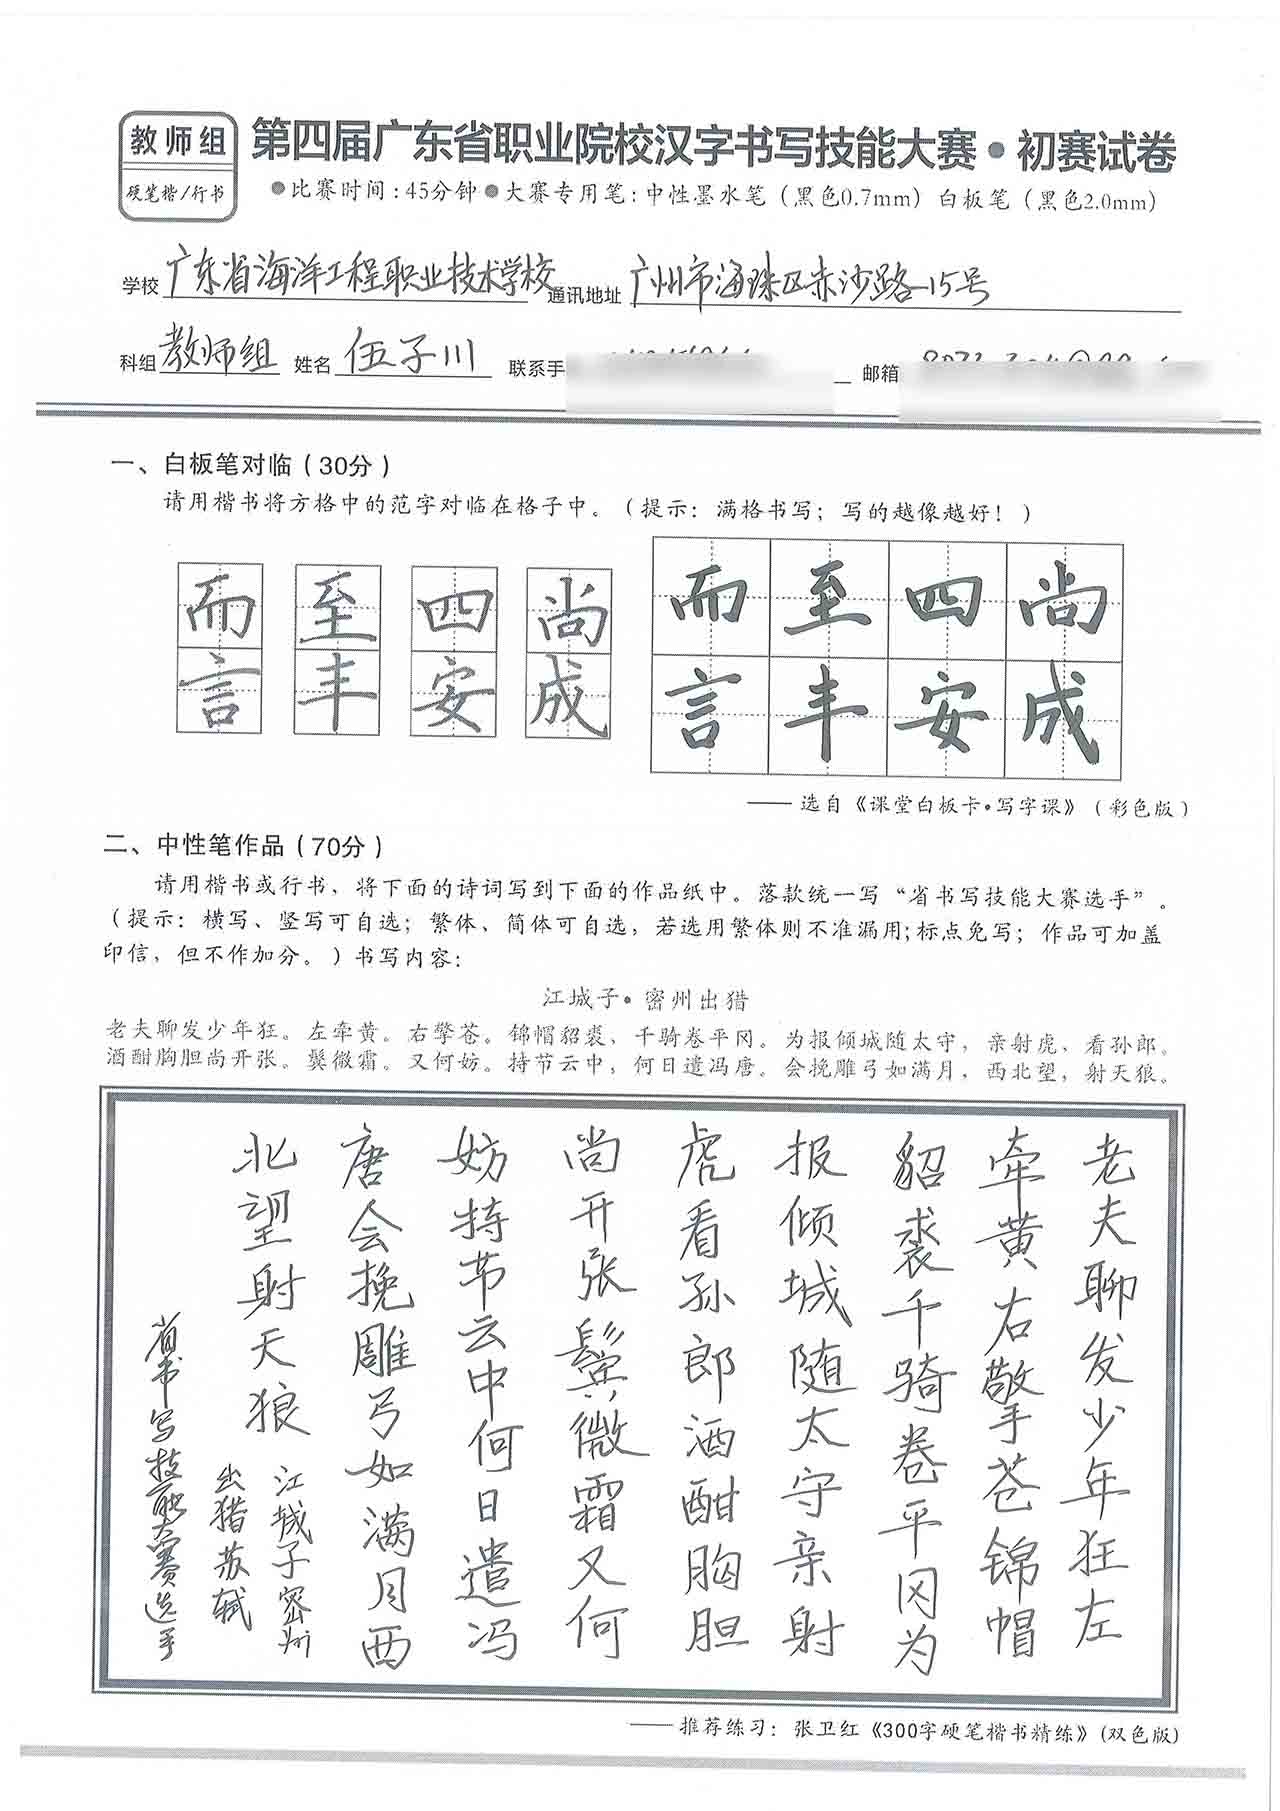 教师组
硬笔楷/行书
第四届广东省职业院校汉字书写技能大赛·初赛试卷
●比赛时间:45分钟●大赛专用笔:中性墨水笔（黑色0.7mm）白板笔（黑色2.0mm）
学校 广东省海洋工程职业技术学校 通讯地址 广州市海珠区赤沙路15号
科组 教师组 姓名 伍子川 联系手 邮箱
一、白板笔对临（30分）
请用楷书将方格中的范字对临在格子中。（提示：满格书写；写的越像越好！）
而 至 四 尚 而 至 四 尚
言 丰 安 成 言 丰 安 成
—— 选自《课堂白板卡·写字课》（彩色版）
二、中性笔作品（70分）
请用楷书或行书、将下面的诗词写到下面的作品纸中。落款统一写“省书写技能大赛选手”。
（提示：横写、竖写可自选；繁体、简体可自选，若选用繁体则不准漏用;标点免写；作品可加盖
印信，但不作加分。）书写内容：
江城子·密州出猎
老夫聊发少年狂。左牵黄。右擎苍。锦帽貂裘、千骑卷平冈。为报倾城随太守，亲射虎、看孙郎。
酒酣胸胆尚开张。鬓微霜。又何妨。持节云中，何日遣冯唐。会挽雕弓如满月，西北望，射天狼。
老夫聊发少年狂左
牵黄右擎苍锦帽
貂裘千骑卷平冈为
报倾城随太守亲射
虎看孙郎酒酣胸胆
尚开张鬓微霜又何
妨持节云中何日遣冯
唐会挽雕弓如满月西
北望射天狼
江城子密州
出猎苏轼
省书写技能大赛选手
—— 推荐练习：张卫红《300字硬笔楷书精练》(双色版)